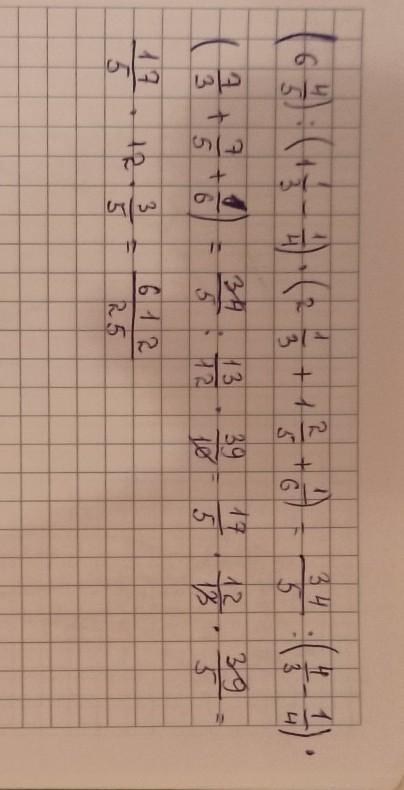 (6 4/5) : (1 1/3 - 1/4) · (2 1/3 + 1 2/5 + 1/6) = 34/5 : (4/3 - 1/4) ·
(7/3 + 7/5 + 1/6) = 34/5 : 13/12 · 39/10 = 17/5 · 12/13 · 39/5 =
17/5 · 12 · 3/5 = 612/25